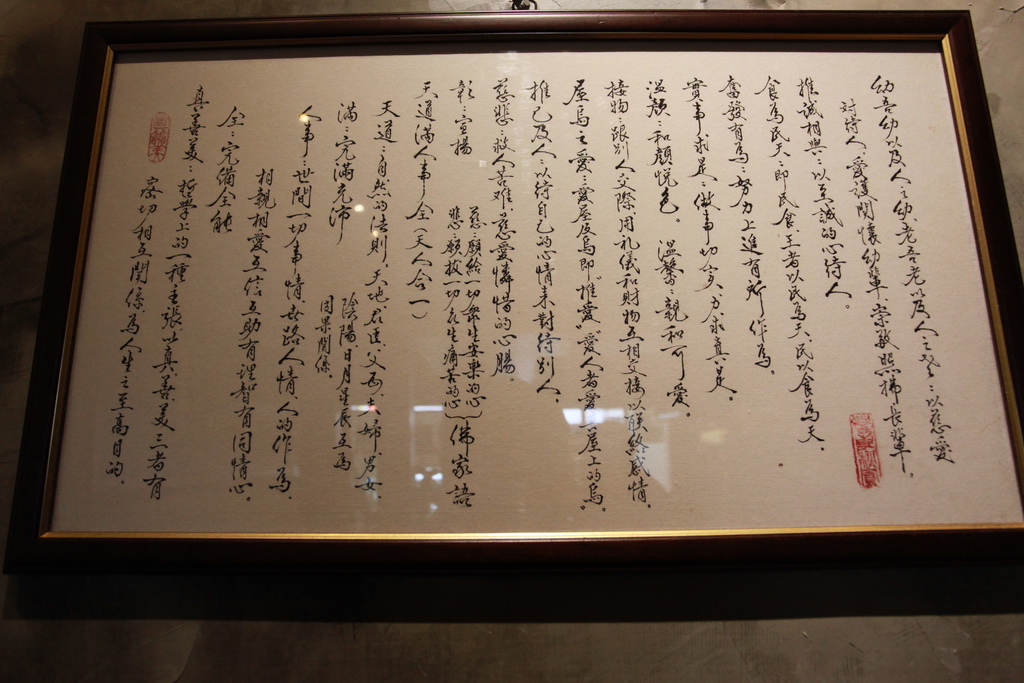 幼吾幼以及人之幼、老吾老以及人之老：以慈愛
對待人、愛護関懷幼輩、崇敬照拂長輩。
推誠相與：以至誠的心待人。
食為民天：即民食、王者以民為天、民以食為天。
奮發有為：努力上進有所作為。
實事求是：做事切实、力求真是。
溫顏：和顏悅色。 溫馨：親和可愛。
接物：跟別人交際用礼儀和財物互相交接以联絡感情。
屋烏之愛：愛屋及烏即"推愛""愛人者愛一屋上的烏"。
推己及人：以待自己的心情来對待別人。
慈悲：救人苦难、慈愛憐惜的心腸。
彰：宣揚
慈願給一切衆生安樂的心
悲願拔一切众生痛苦的心 佛家語
天道滿人事全(天人合一)
天道：自然的法則、天地、君臣、父子、夫婦、男女、
陰陽、日月星辰互為
因果関係。
滿：完滿充沛
人事：世間一切事情、世路人情、人的作為、
相親相愛互信互助有理智有同情心。
全：完備全能
真善美：哲學上的一種主張、以真、善、美三者有
密切相互関係、為人生之至高目的。